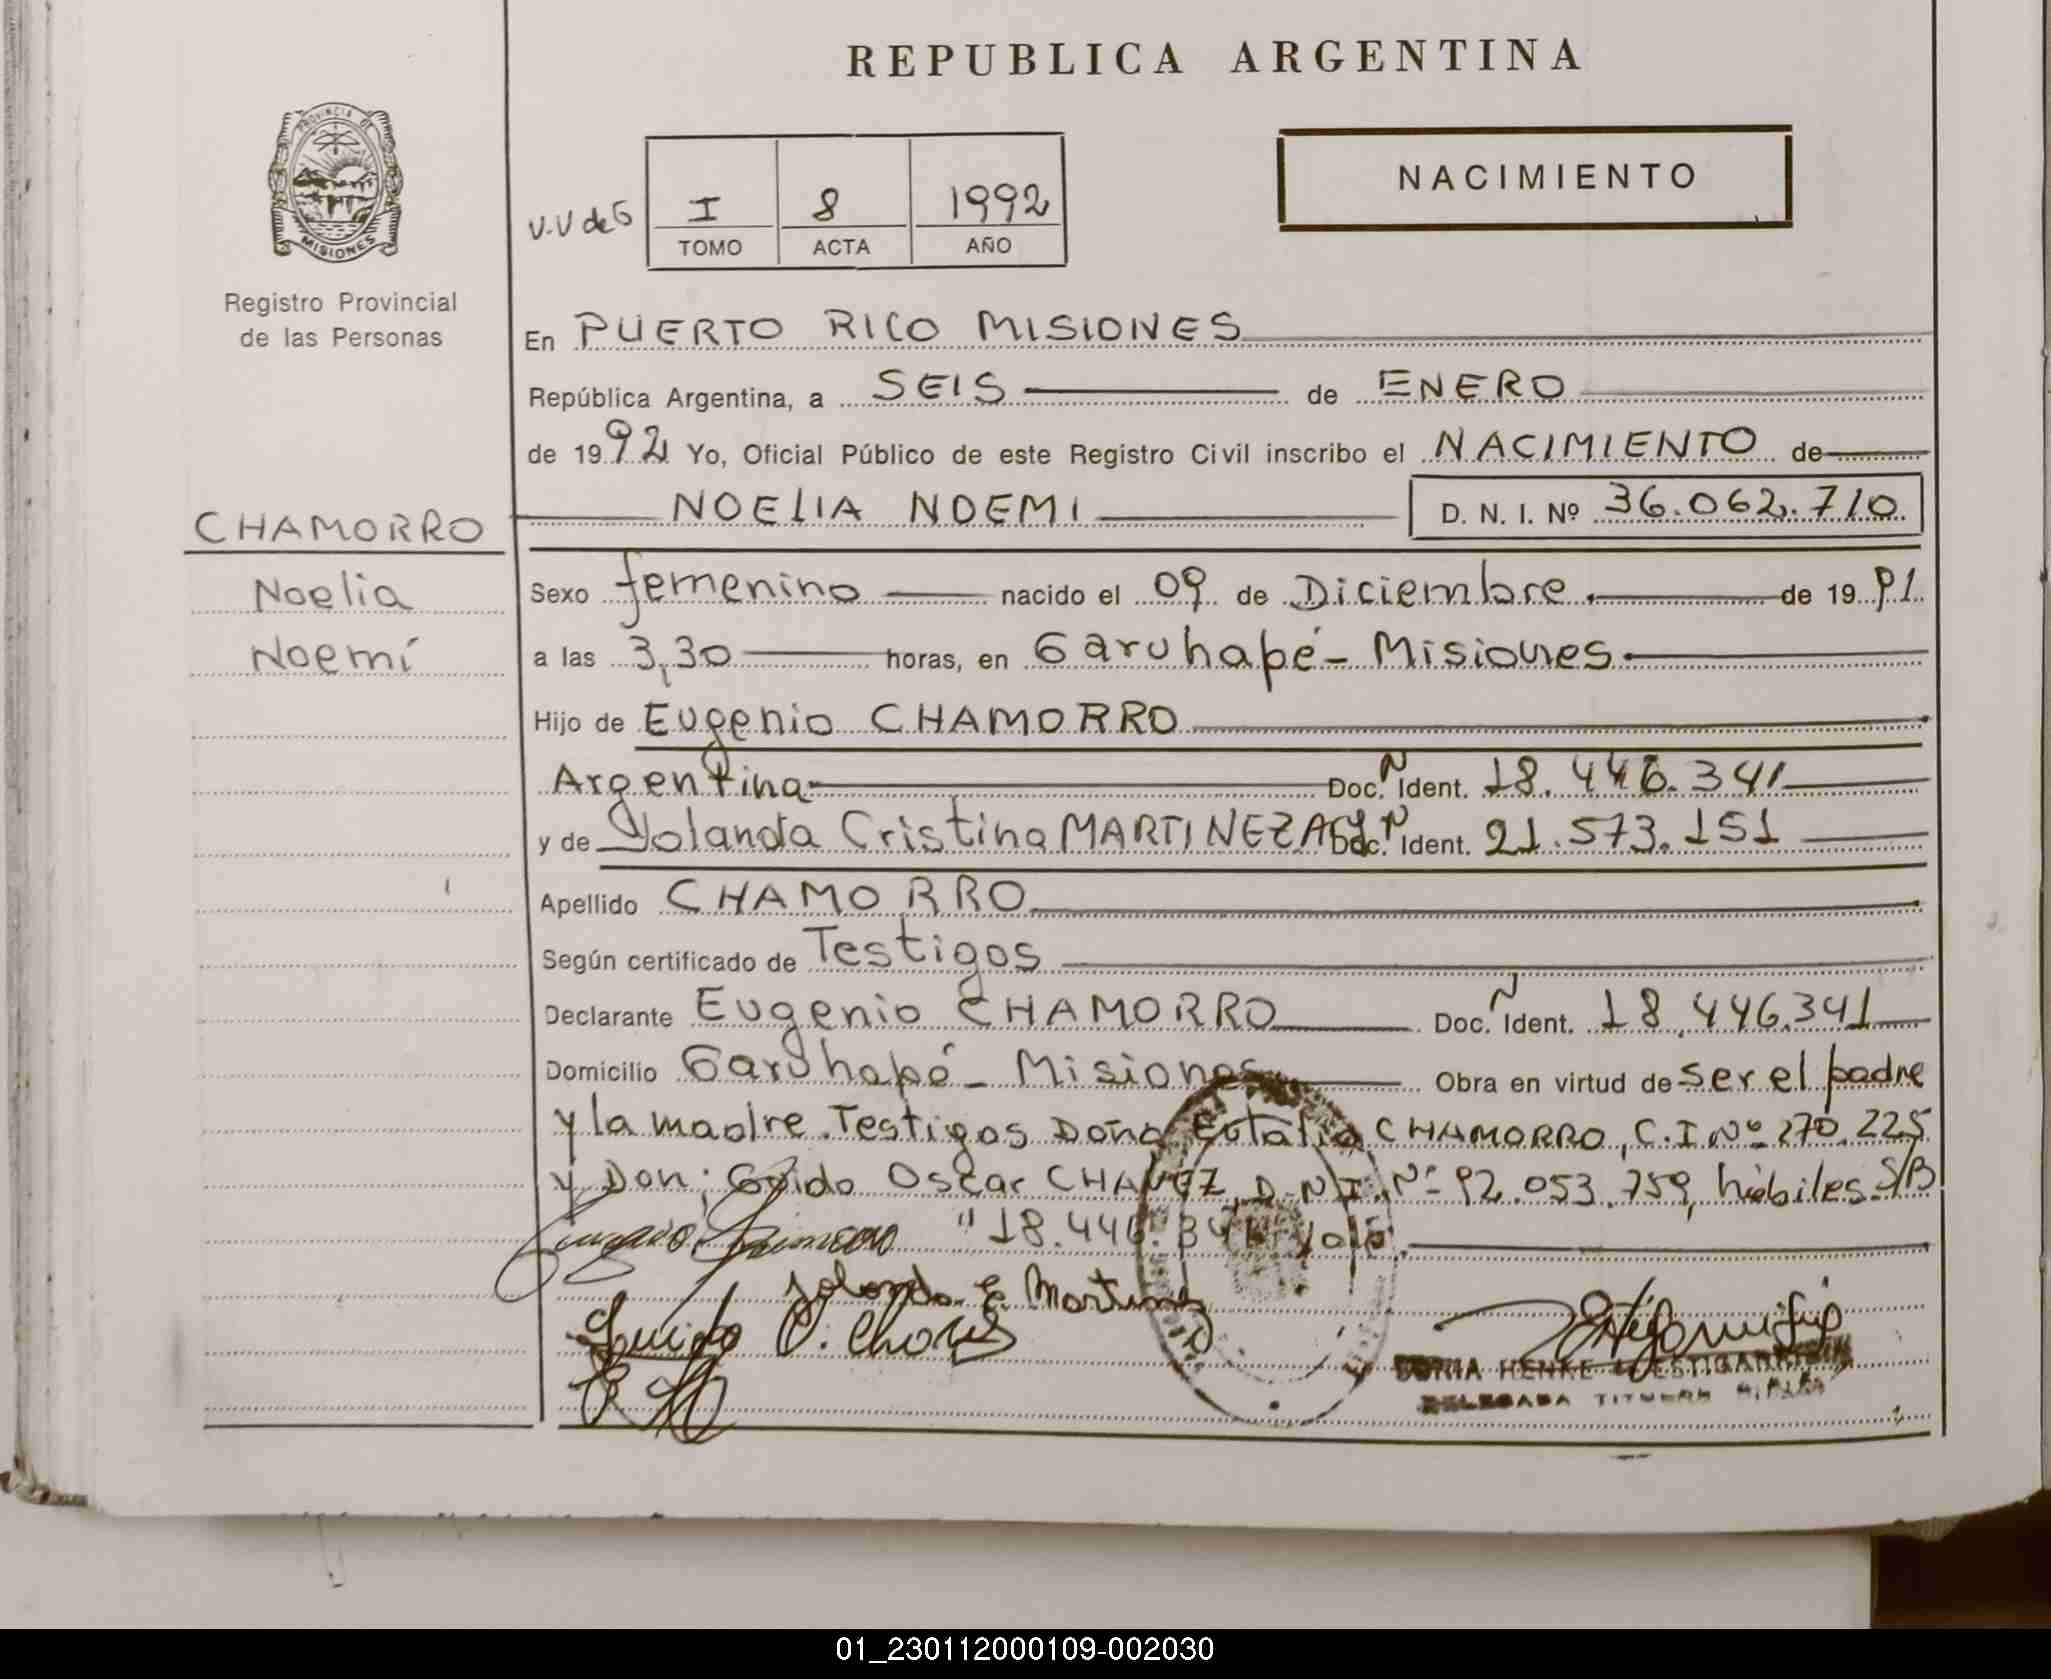 REPUBLICA ARGENTINA
PROVINCIA DE
MISIONES
Registro Provincial
de las Personas
V.V de G
I 8 1992
TOMO ACTA AÑO
NACIMIENTO
En PUERTO RICO MISIONES
República Argentina, a SEIS de ENERO
de 1992 Yo, Oficial Público de este Registro Civil inscribo el NACIMIENTO de
CHAMORRO
Noelia
Noemí
NOELIA NOEMI D. N. I. Nº 36.062.710
Sexo femenino nacido el 09 de Diciembre. de 1991
a las 3,30 horas, en Garuhapé - Misiones
Hijo de Eugenio CHAMORRO
Argentina Doc. N Ident. 18.446.341
y de Yolanda Cristina MARTINEZ Doc. N Ident. 21.573.151
Apellido CHAMORRO
Según certificado de Testigos
Declarante Eugenio CHAMORRO Doc. N Ident. 18.446.341
Domicilio Garuhapé - Misiones Obra en virtud de ser el padre
y la madre. Testigos Doña Eulalia CHAMORRO, C.I Nº 270.225
y Don; Guido Oscar CHAVEZ, D.N.I. Nº 92.053.759, hábiles. S/B
"18.446.341"
Yolanda C. Martinez
Guido O. Chavez
SONIA HENKE
DELEGADA TITULAR
01_230112000109-002030